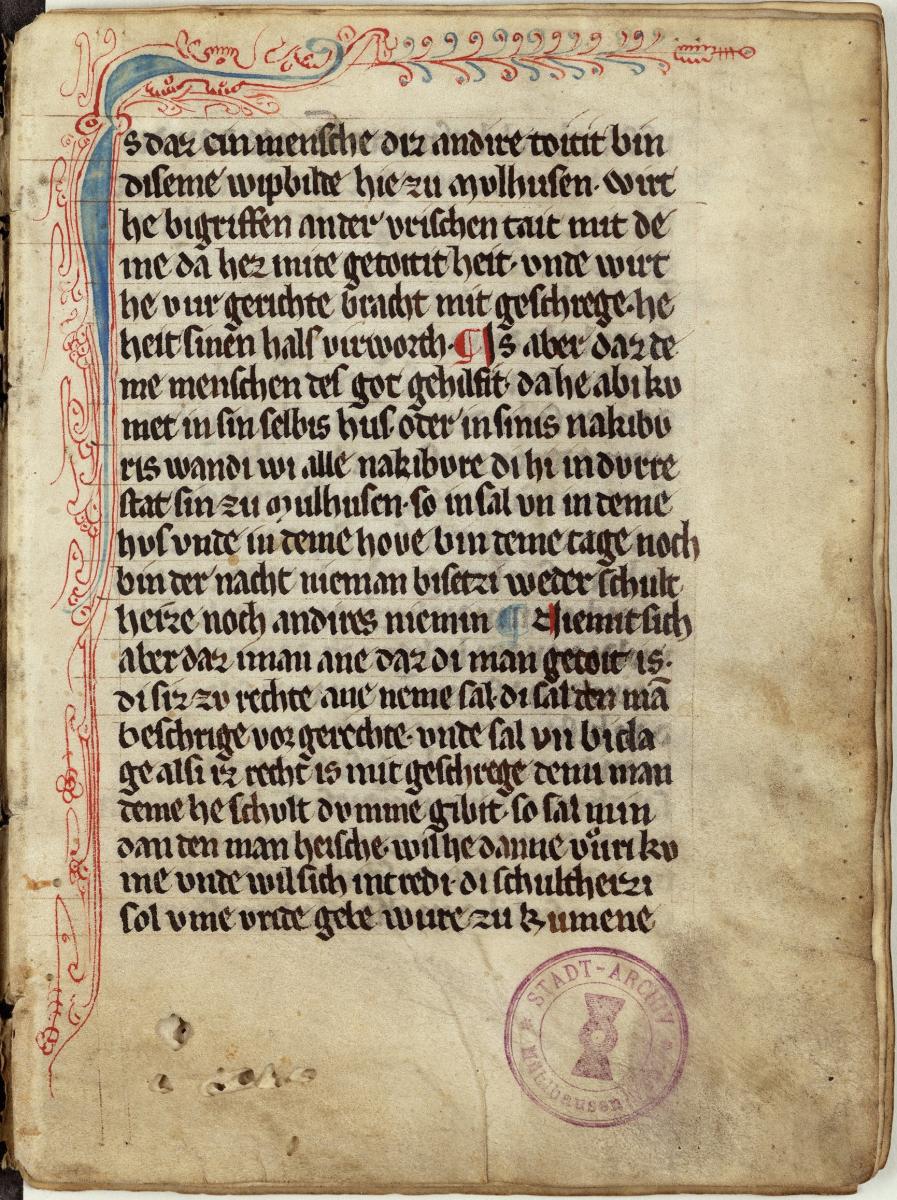 Is daz ein mensche diz andire toitit bin
diseme wipbilde hie zu mulhusen· wirt
he bigriffen an der vrischen tait mit de
me da hez mite getoitit heit· vnde wirt
he vur gerichte bracht mit geschrege· he
heit sinen hals virworch· ¶ Is aber daz de
me menschen des got gehilfit· da he abi ku
met in sin selbis hus· oder in sinis nakibu
ris wandi wi alle nakibure di hi in durre
stat sin zu mulhusen· so in sal vn in deme
hus vnde in deme hove bin deme tage noch
bin der nacht nieman bisetzi weder schult
heize noch andires niemin ¶ Ziemit sich
aber daz iman ane daz di man getoit is·
di siz zu rechte ane neme sal di sal den mā
beschrige vor gerechte· vnde sal vn bicla
ge alsi iz recht is mit geschrege deme man
deme he schult dumme gibit· so sal min
dan den man heische· wil he danne vuri ku
me vnde wil sich intredi· di schultheizi
sol vme vrede gebe wure zu kumene
STADT-ARCHIV
Mülhausen